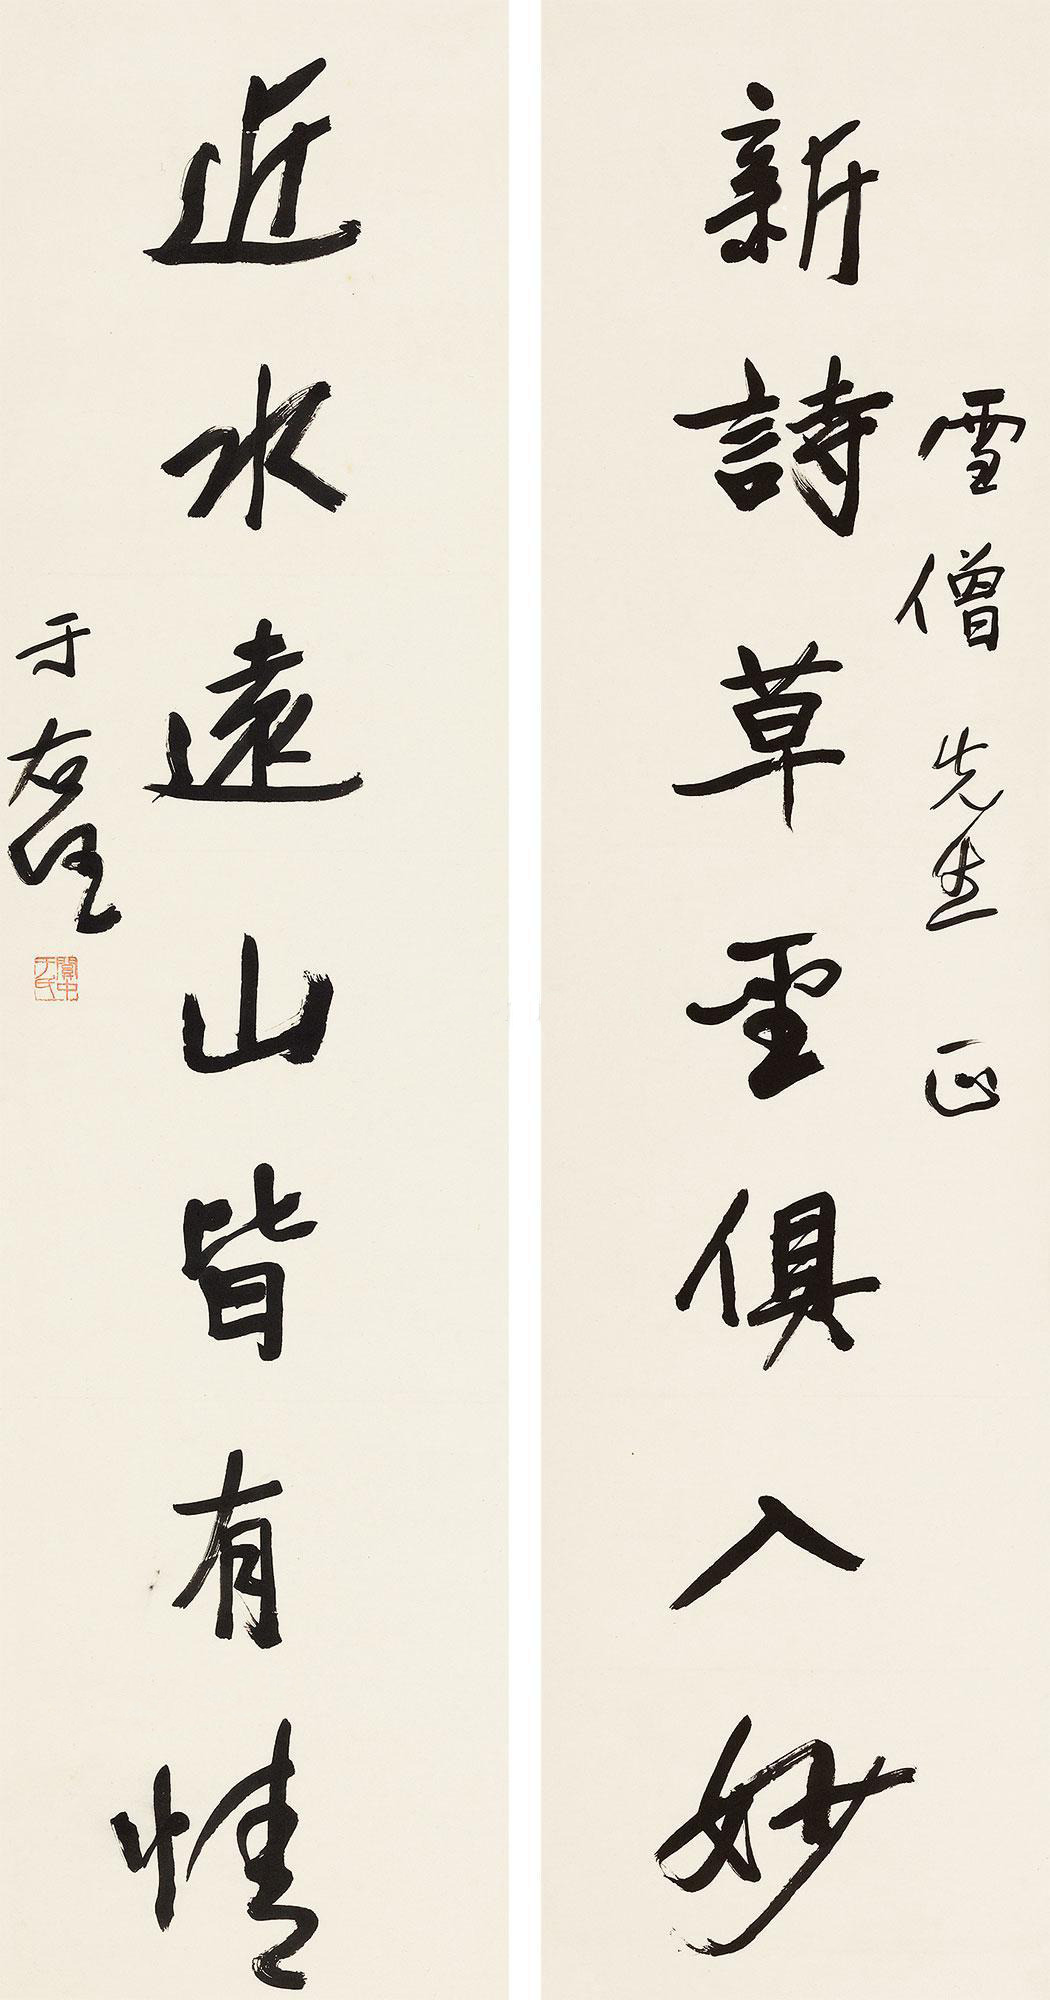 新詩草聖俱入妙
雪僧先生正
近水遠山皆有情
于右任
關中于氏